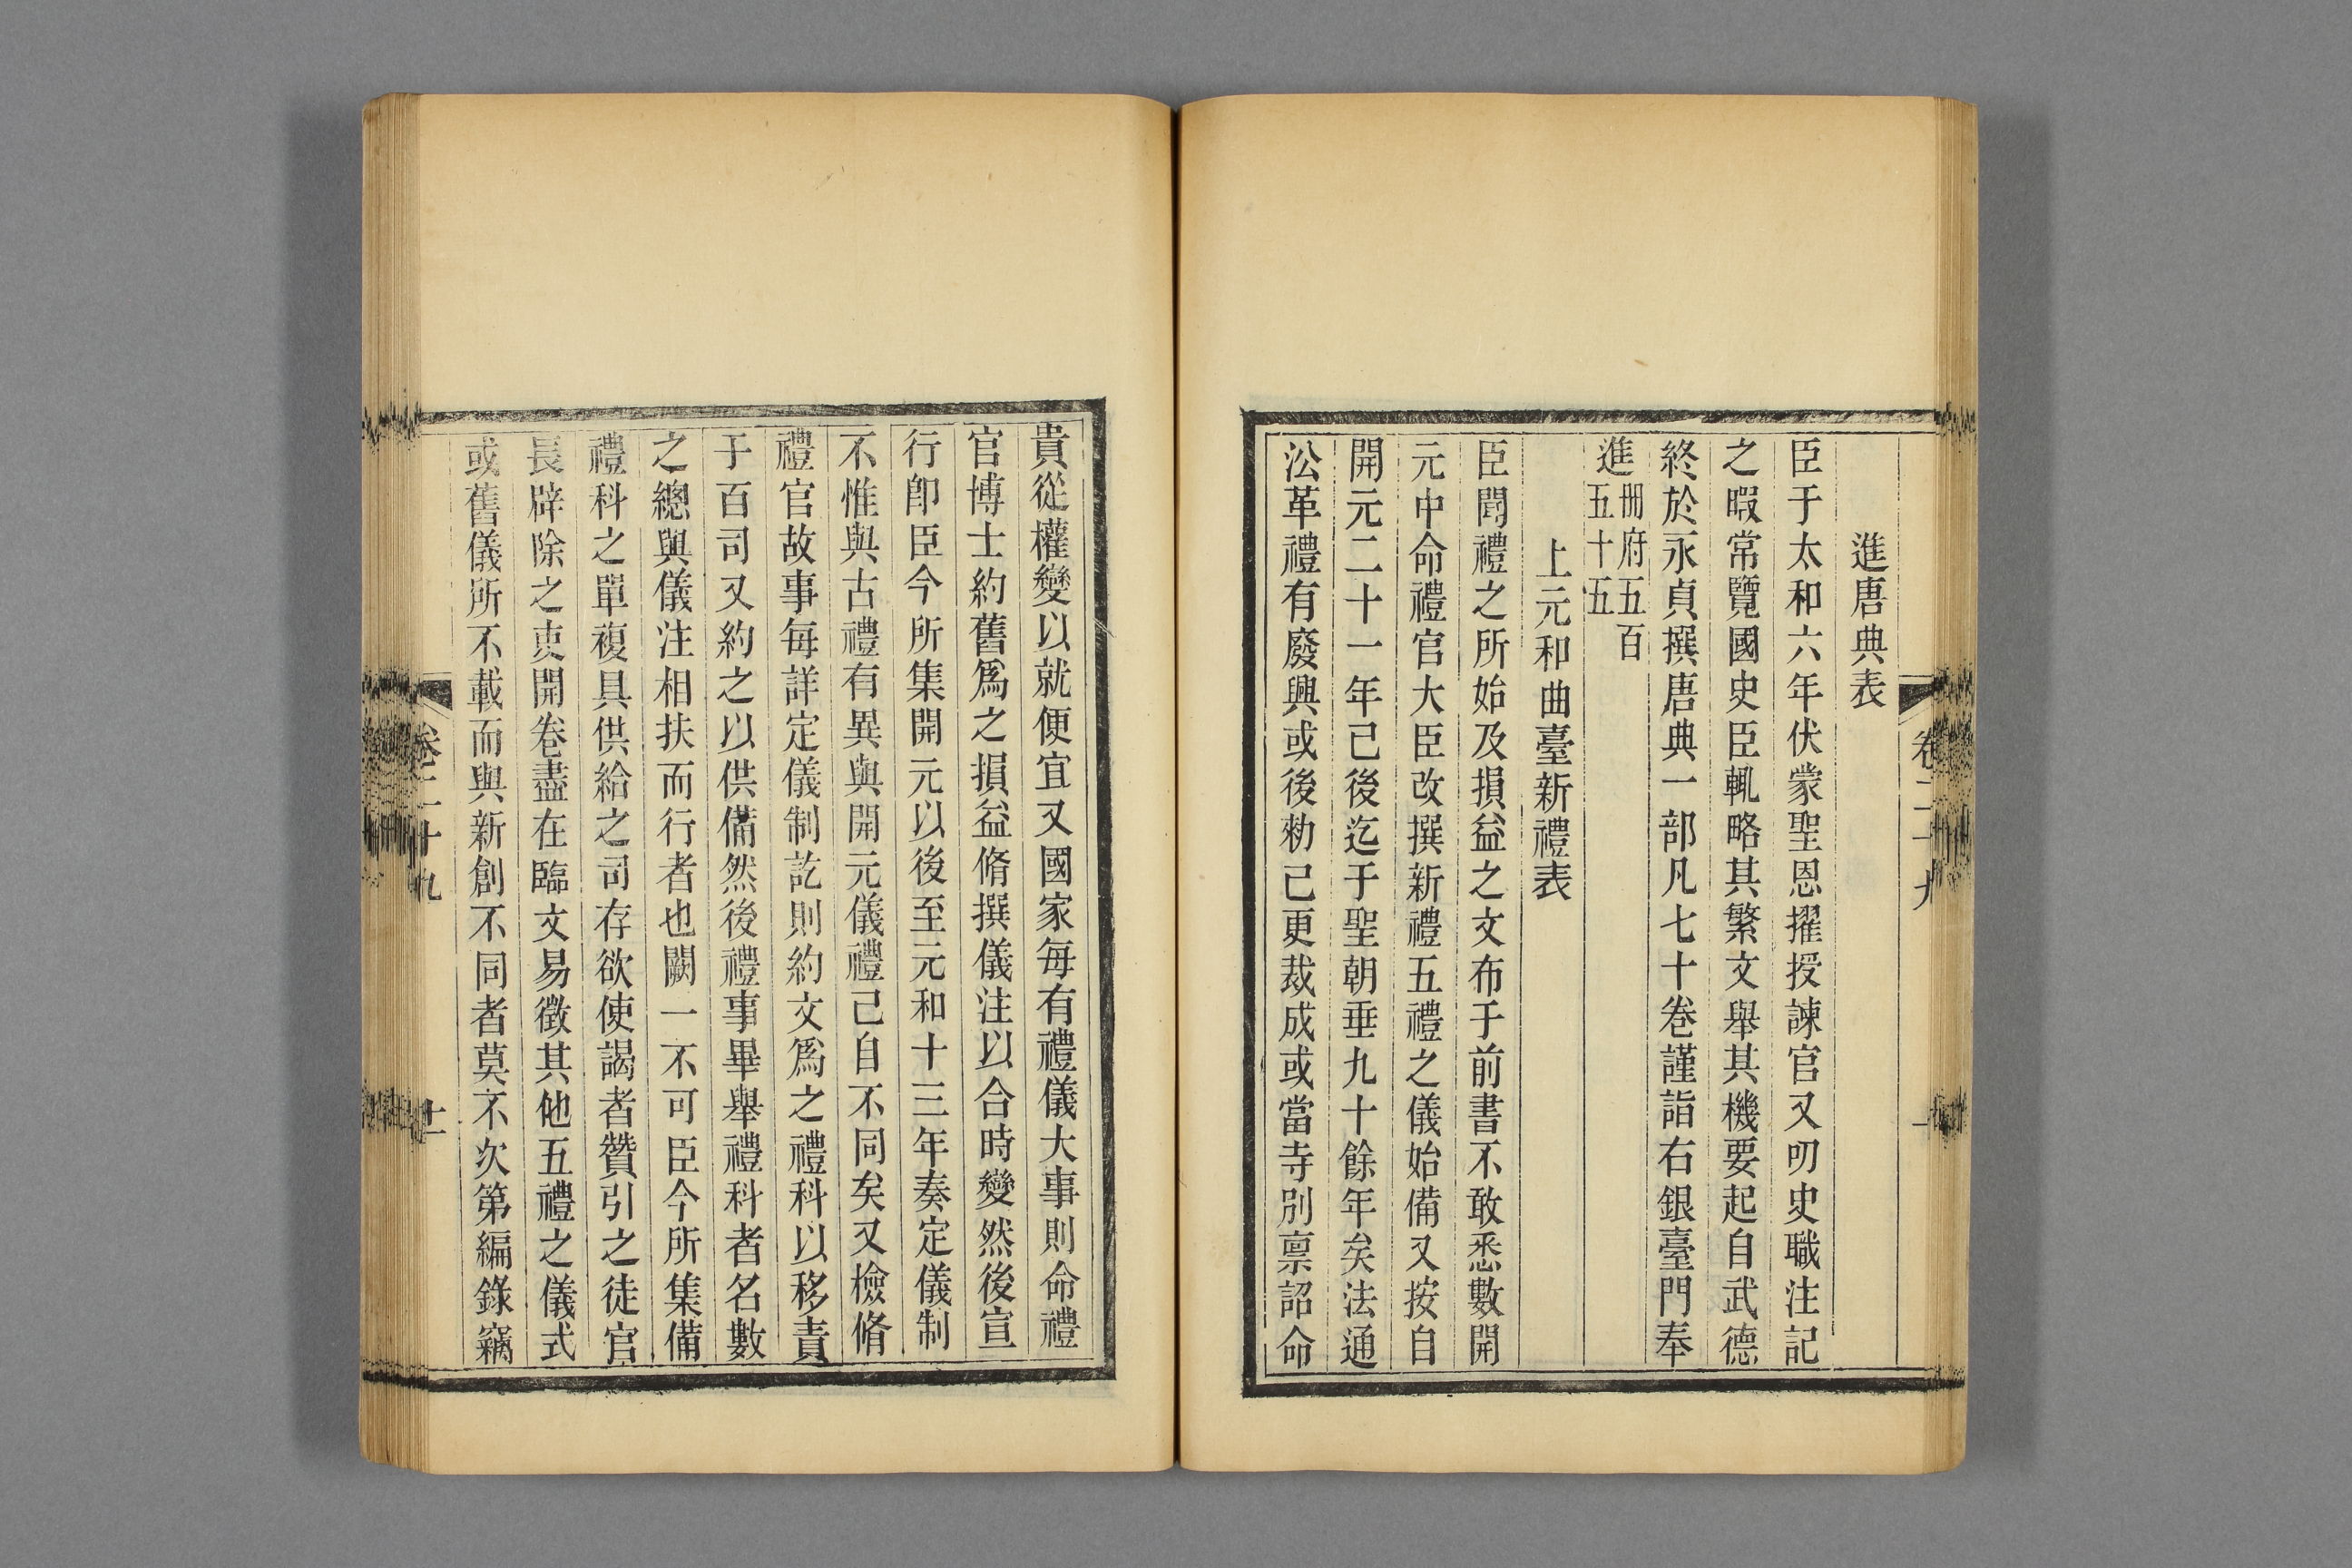 進唐典表
臣于太和六年伏蒙聖恩擢授諫官又叨史職注記
之暇常覽國史臣輒略其繁文舉其機要起自武德
終於永貞撰唐典一部凡七十卷謹詣右銀臺門奉
進冊府五百五十五
上元和曲臺新禮表
臣聞禮之所始及損益之文布于前書不敢悉數開
元中命禮官大臣改撰新禮五禮之儀始備又按自
開元二十一年己後迄于聖朝垂九十餘年矣法通
沿革禮有廢興或後勑己更裁成或當寺別禀詔命
貴從權變以就便宜又國家每有禮儀大事則命禮
官博士約舊爲之損益脩撰儀注以合時變然後宣
行卽臣今所集開元以後至元和十三年奏定儀制
不惟與古禮有異與開元儀禮己自不同矣又檢脩
禮官故事每詳定儀制訖則約文爲之禮科以移責
于百司又約之以供備然後禮事畢舉禮科者名數
之總與儀注相扶而行者也闕一不可臣今所集備
禮科之單複具供給之司存欲使謁者贊引之徒官
長辟除之吏開卷盡在臨文易徵其他五禮之儀式
或舊儀所不載而與新創不同者莫不次第編錄竊
卷二十九